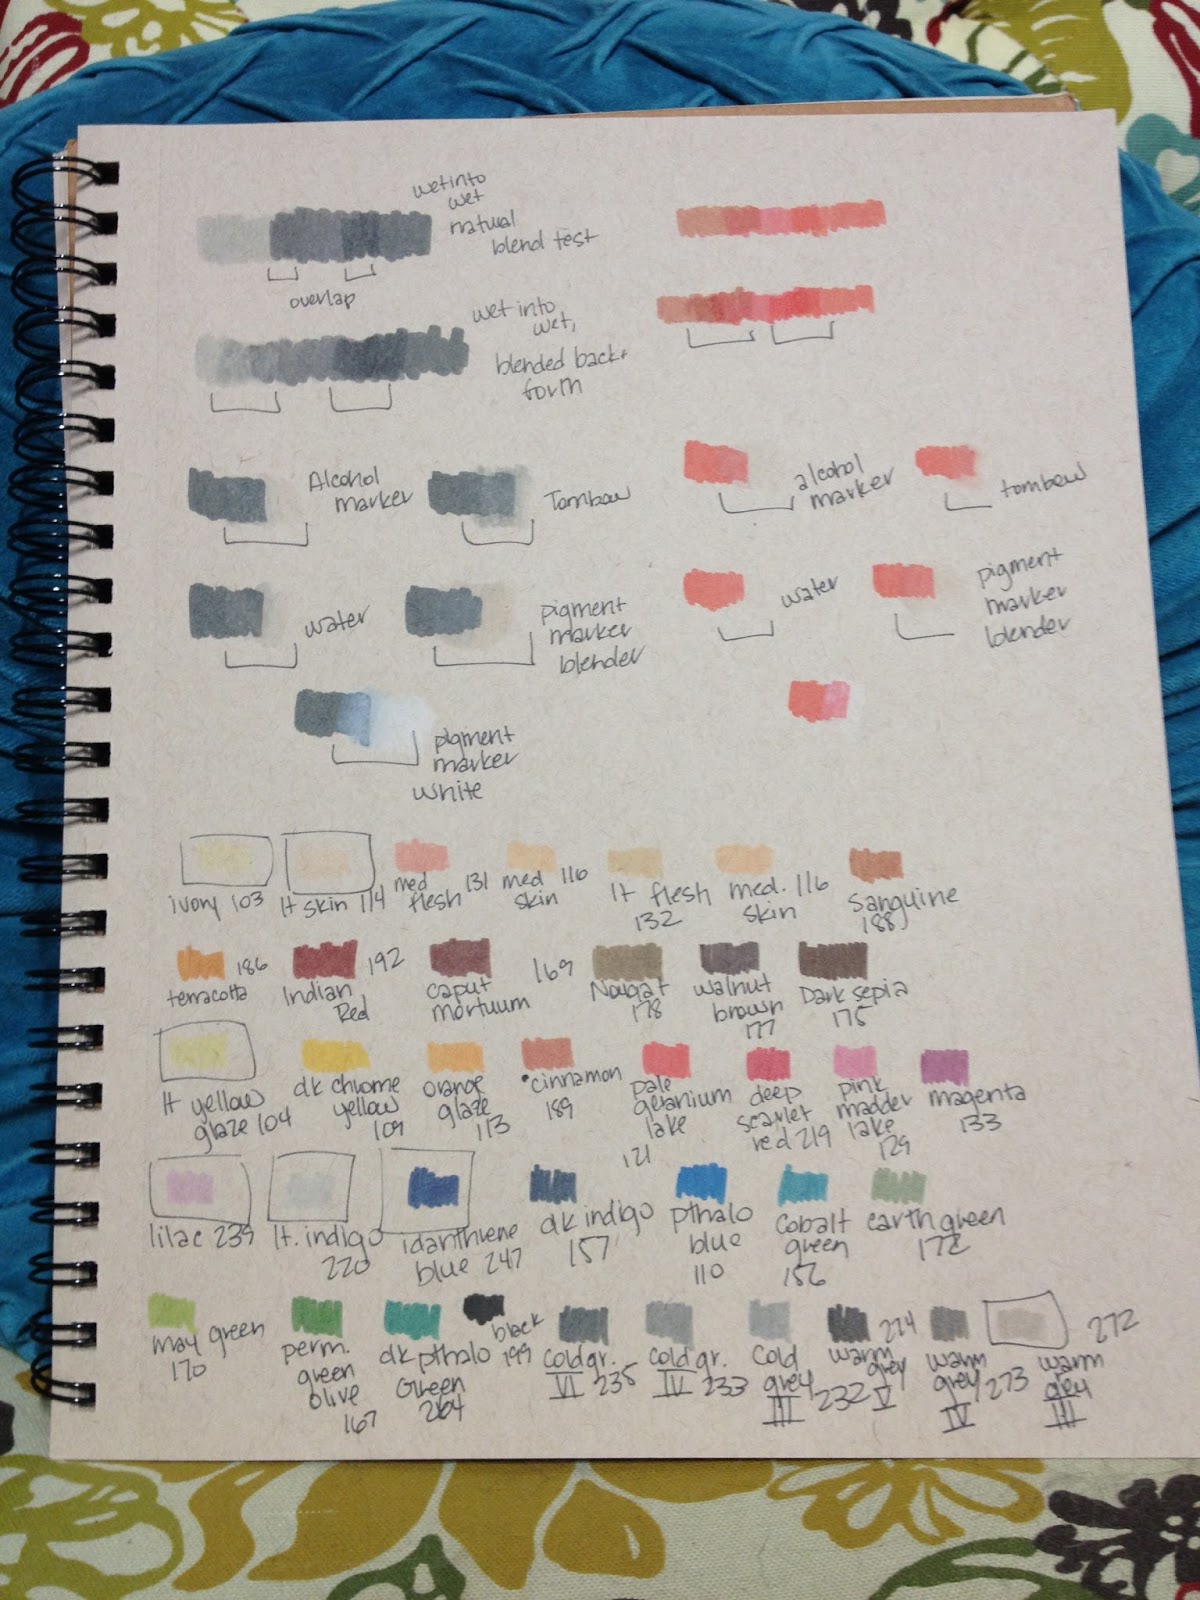 wet into
wet
natural
blend test
overlap
wet into
wet,
blended back +
forth
Alcohol
marker
Tombow
alcohol
marker
tombow
water
pigment
marker
blender
water
pigment
marker
blender
pigment
marker
white
ivory 103
lt skin 114
med 131
flesh
med 116
skin
lt flesh
132
med. 116
skin
Sanguine
188
186
terracotta
192
Indian
Red
169
caput
mortuum
Nougat
178
walnut
brown
177
Dark sepia
175
lt yellow
glaze 104
dk chrome
yellow
109
orange
glaze
113
cinnamon
189
pale
geranium
lake
121
deep
scarlet
red 219
pink
madder
lake
129
magenta
133
lilac 239
lt. indigo
220
idanthrene
blue 247
dk indigo
157
pthalo
blue
110
Cobalt
green
156
earth green
172
may green
170
perm.
green
olive
167
dk pthalo
Green
264
black
199
cold gr.
VI 235
cold gr.
IV 233
Cold
grey
III 232
274
warm
grey
V
warm
grey 273
IV
272
warm
grey
III